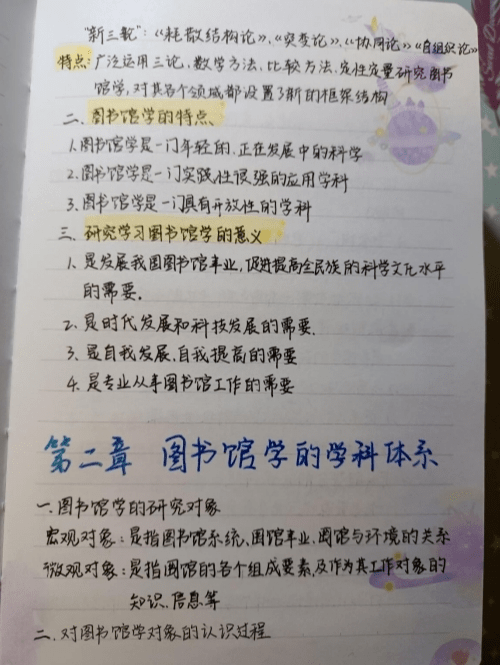 "新三论":《耗散结构论》、《突变论》、《协同论》《自组织论》
特点:广泛运用三论,数学方法、比较方法、定性定量研究图书
馆学,对其各个领域都设置了新的框架结构
二、图书馆学的特点、
1.图书馆学是一门年轻的、正在发展中的科学
2.图书馆学是一门实践性很强的应用学科
3.图书馆学是一门具有开放性的学科
三、研究学习图书馆学的意义
1、是发展我国图书馆事业,促进提高全民族的科学文化水平
的需要.
2、是时代发展和科技发展的需要.
3、是自我发展、自我提高的需要
4、是专业从事图书馆工作的需要
第二章 图书馆学的学科体系
一.图书馆学的研究对象
宏观对象:是指图书馆系统、图馆事业、图馆与环境的关系
微观对象:是指图馆的各个组成要素,及作为其工作对象的
知识、信息等
二、对图书馆学对象的认识过程